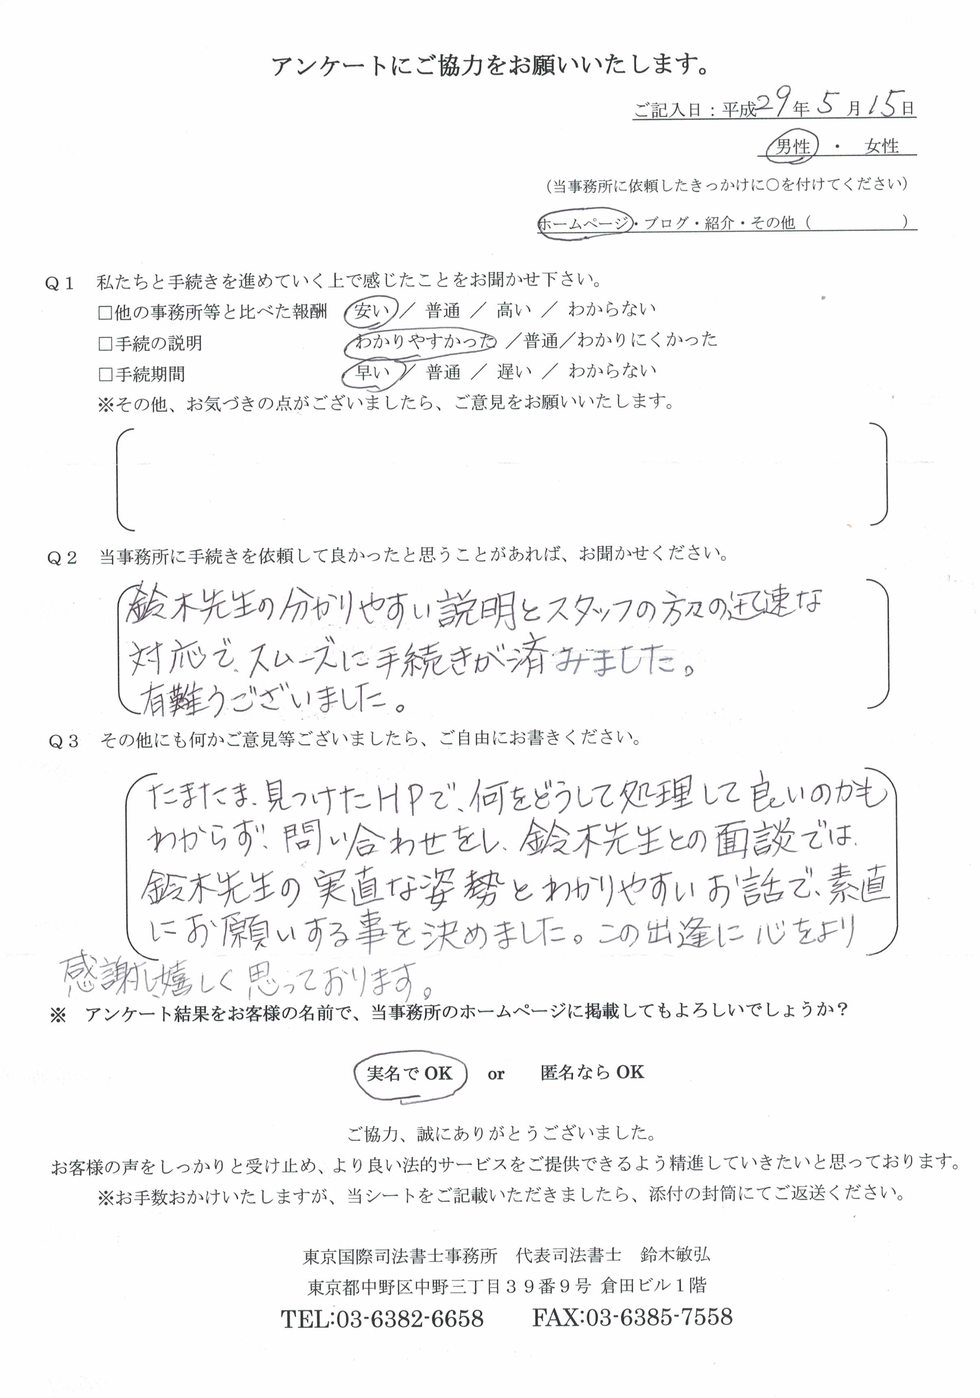 アンケートにご協力をお願いいたします。
ご記入日：平成29年5月15日
男性 ・ 女性
（当事務所に依頼したきっかけに○を付けてください）
ホームページ・ブログ・紹介・その他（　　　　　　）
Ｑ１　私たちと手続きを進めていく上で感じたことをお聞かせ下さい。
□他の事務所等と比べた報酬　安い ／ 普通 ／ 高い ／ わからない
□手続の説明　わかりやすかった ／普通／わかりにくかった
□手続期間　早い ／ 普通 ／ 遅い ／ わからない
※その他、お気づきの点がございましたら、ご意見をお願いいたします。
Ｑ２　当事務所に手続きを依頼して良かったと思うことがあれば、お聞かせください。
鈴木先生の分かりやすい説明とスタッフの方々の迅速な
対応で、スムーズに手続きが済みました。
有難うございました。
Ｑ３　その他にも何かご意見等ございましたら、ご自由にお書きください。
たまたま、見つけたＨＰで、何をどうして処理して良いのかも
わからず、問い合わせをし、鈴木先生との面談では、
鈴木先生の実直な姿勢とわかりやすいお話で、素直
にお願いする事を決めました。この出逢に心をより
感謝し、嬉しく思っております。
※　アンケート結果をお客様の名前で、当事務所のホームページに掲載してもよろしいでしょうか？
実名でOK　or　匿名ならOK
ご協力、誠にありがとうございました。
お客様の声をしっかりと受け止め、より良い法的サービスをご提供できるよう精進していきたいと思っております。
※お手数おかけいたしますが、当シートをご記載いただきましたら、添付の封筒にてご返送ください。
東京国際司法書士事務所　代表司法書士　鈴木敏弘
東京都中野区中野三丁目３９番９号 倉田ビル１階
TEL:03-6382-6658　FAX:03-6385-7558